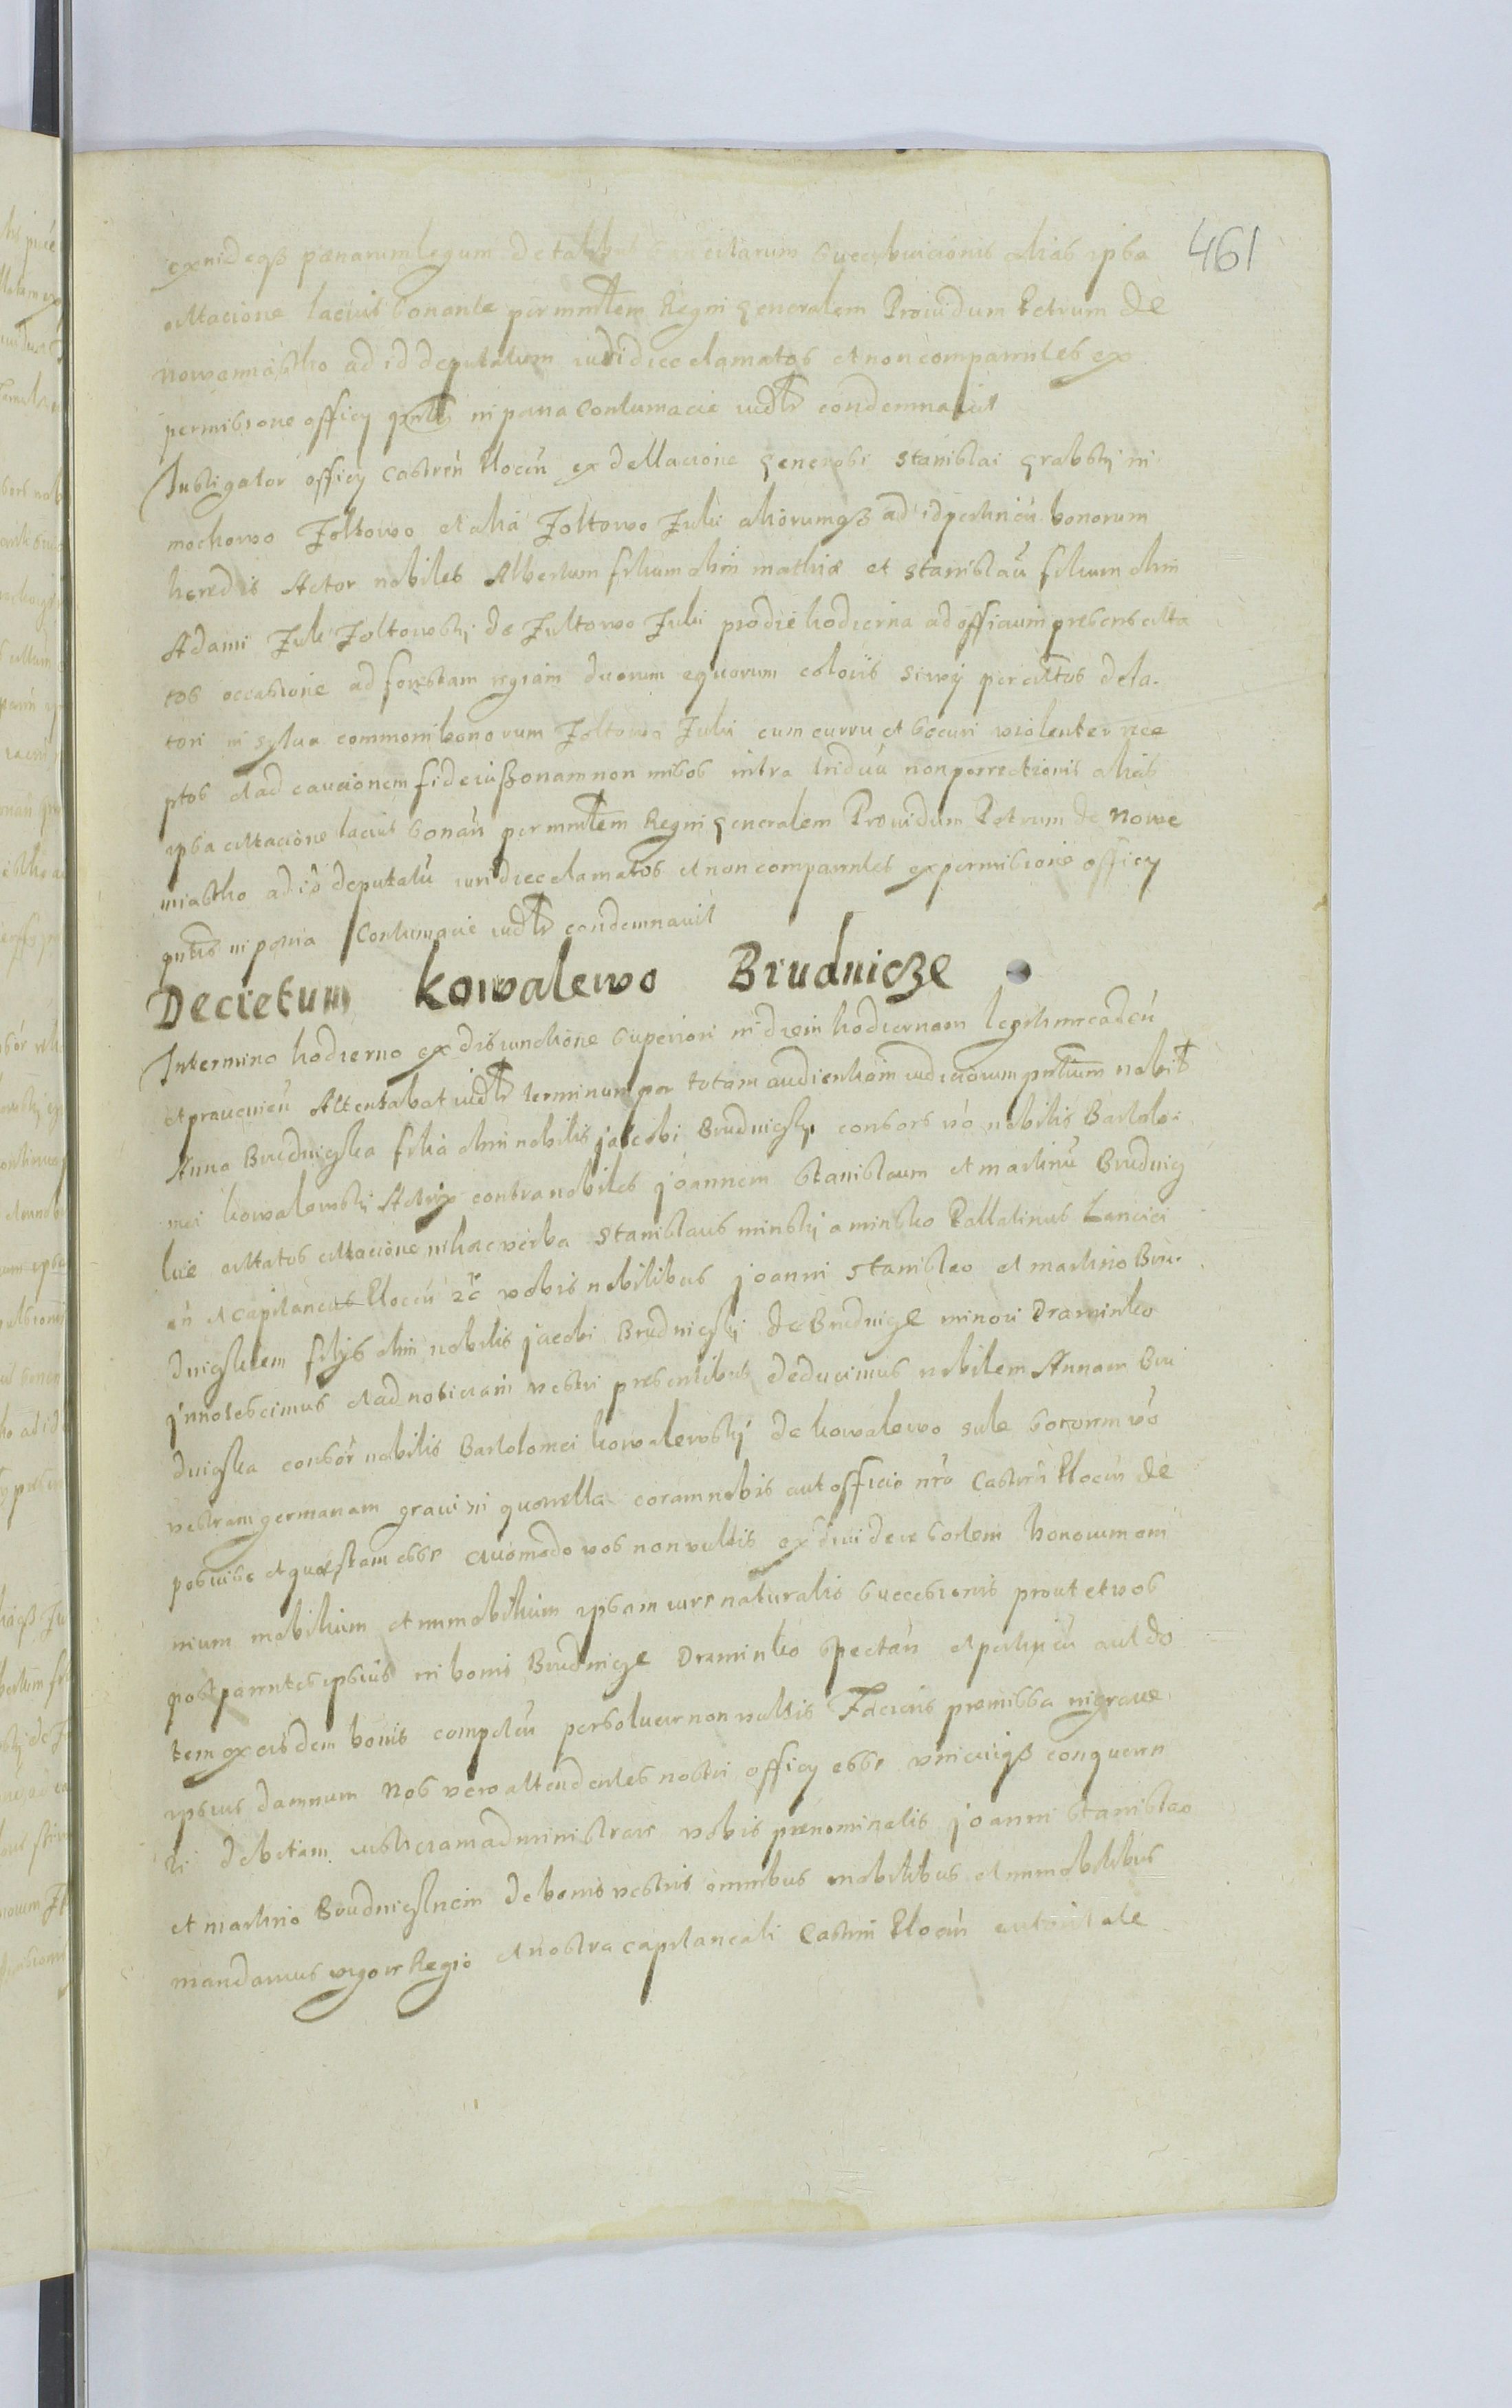 461
exindeqз pænarum legum de talibus sancitarum succubuicionis alias ipsa
cittacione lacius sonante per mnrlem Regni generalem Prouidum Petrum de
nowemiastho ad id deputatum iuridice clamatos et non comparentes ex
permissione officy pntis in pæna Contumacie iudlr condemnauit
Instigator officy Castren Plocen ex dellacione generosi Stanislai Grabsky in
mochowo Zoltowo et alia Zoltowo Zuki aliorumqз ad id pertinen bonorum
heredis Actor nobiles Albertum filium olim mathiæ et Stanislau filium olim
Adami Zuk Zoltowsky de Zultowo Zuki pro die hodierna ad officium presens citta
tos occasione ad forestam regiam duorum equorum coloris siwy per cittatos dela-
tori in sylua commoni bonorum Zoltowo Zuki cum curru et securi violenter rece
ptos et ad caucionem fideiussoriam non missos intra triduu non porrectionis alias
ipsa cittacione lacius sonan per mnrlem Regni generalem Prouidum Petrum de Nowe
miastho ad id deputatu iuridice clamatos et non comparentes ex permissione officy
pntis in pæna Contumacie iudlr condemnauit
Decretum kowalewo Brudnicze
In termino hodierno ex disiunctione superiori in diem hodiernam legitime caden
et prauenien Attentabat iudlr terminum per totam audientiam iudiciorum pntium nobil
Anna Brudnicska filia olim nobilis jacobi Brudnicsky consors vo nobilis Bartolo-
mei kowalewsky Actrix contra nobiles joannem Stanislaum et martinu Brudnicz
kie cittatos cittacione in hæc verba Stanislaus minsky a minsko Pallatinus Lancici
en et capitaneus Plocen etc vobis nobilibus joanni Stanislao et martino Bru-
dnicskiem filys olim nobilis jacobi Brudnicsky de Brudnicze minori Draminko
jnnotescimus et ad noticiam vestri presentibus deducimus nobilem Annam Bru
dnicska consor nobilis Bartolomei kowalewsky de kowalewo sule sororem vo
vestram germanam graui in querella coram nobis aut officio nro Castren Plocen de
posuisse et questam esse Quomodo vos non vultis ex diuidere sortem bonorum om
nium mobilium et immobilium ipsam iure naturalis successionis prout et vos
post parentes ipsius in bonis Brudnicze Draminko spectan et pertinen aut do
tem ex eisdem bonis competen persoluere non vultis Faciens premissa in graue
ipsius damnum Nos vero attendentes nostri officy esse vnicuiqз conqueren
ti debitam iusticiam administrare vobis prenominatis joanni Stanislao
et martino Brudnicskiem de bonis vestris omnibus mobilibus et immobilibus
mandamus vigore Regio et nostra capitaneali Castren Plocen autoritate